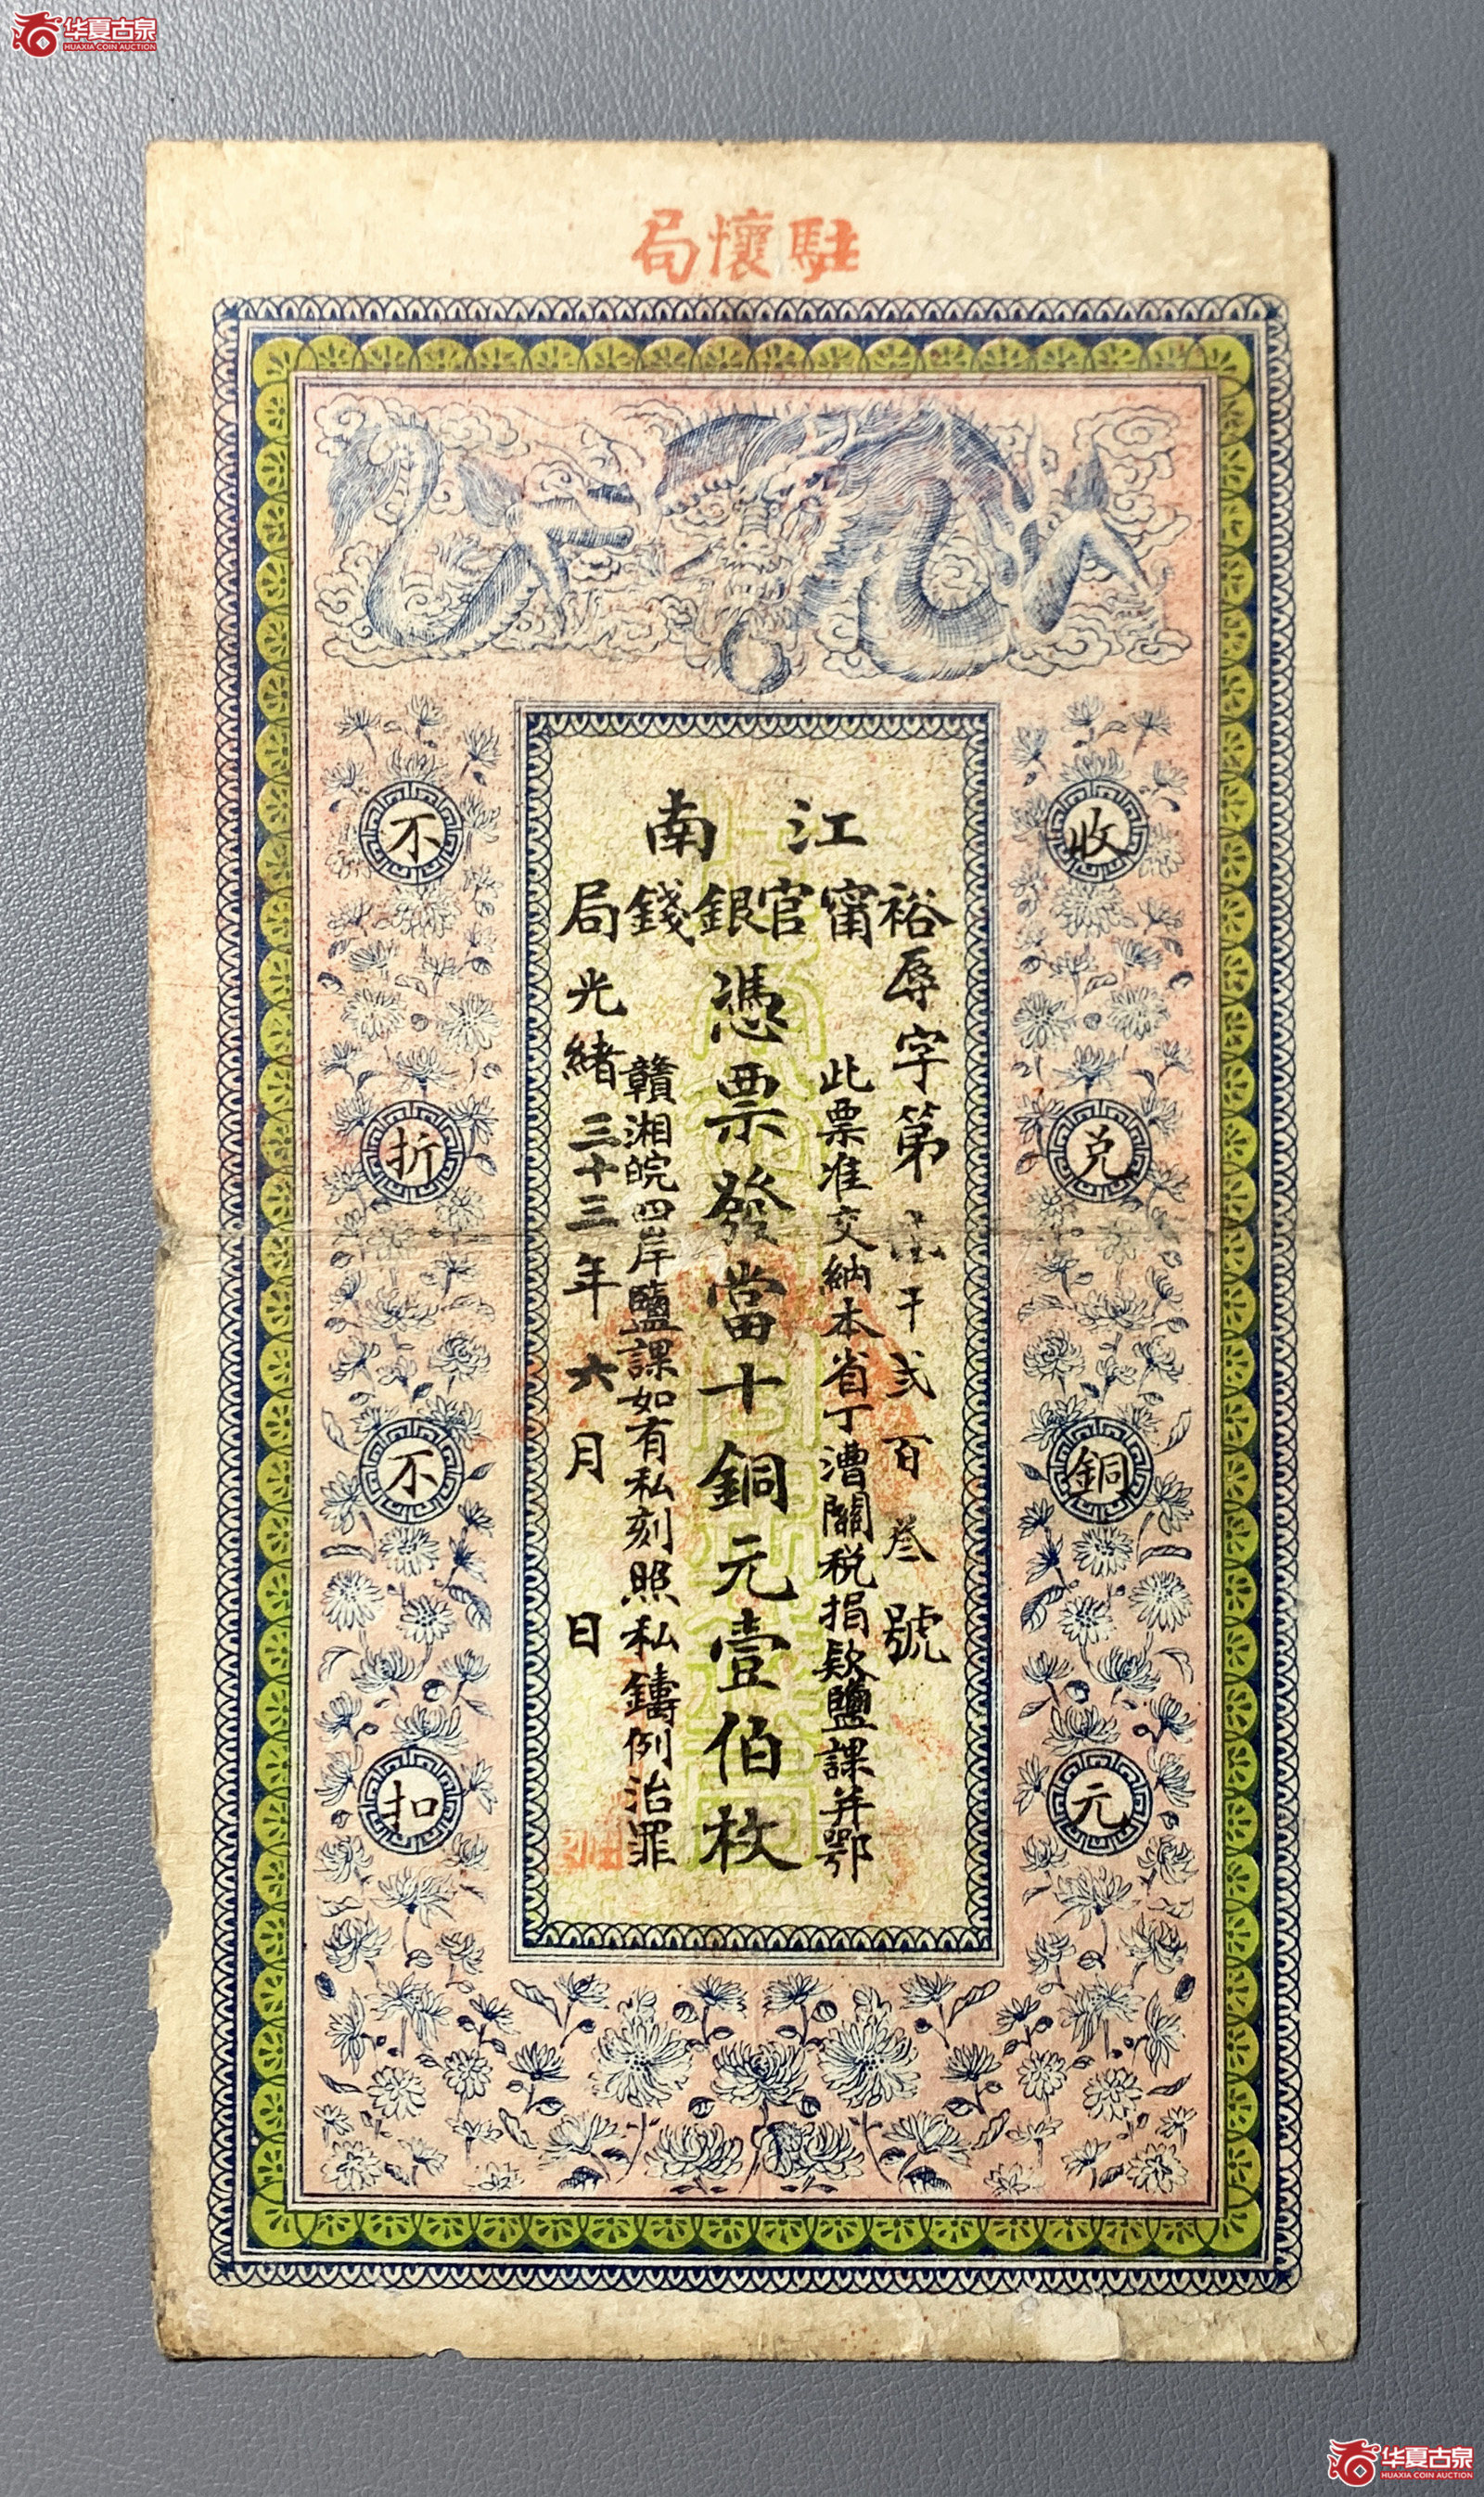 华夏古泉
HUAXIA COIN AUCTION
駐懷局
江南
裕甯官銀錢局
辱字第壹千弍百叁號
此票准交納本省丁漕關稅捐款鹽課并鄂
憑票發當十銅元壹伯枚
贛湘皖四岸鹽課如有私刻照私鑄例治罪
光緒三十三年六月日
收兑銅元
不折不扣
华夏古泉
HUAXIA COIN AUCTION